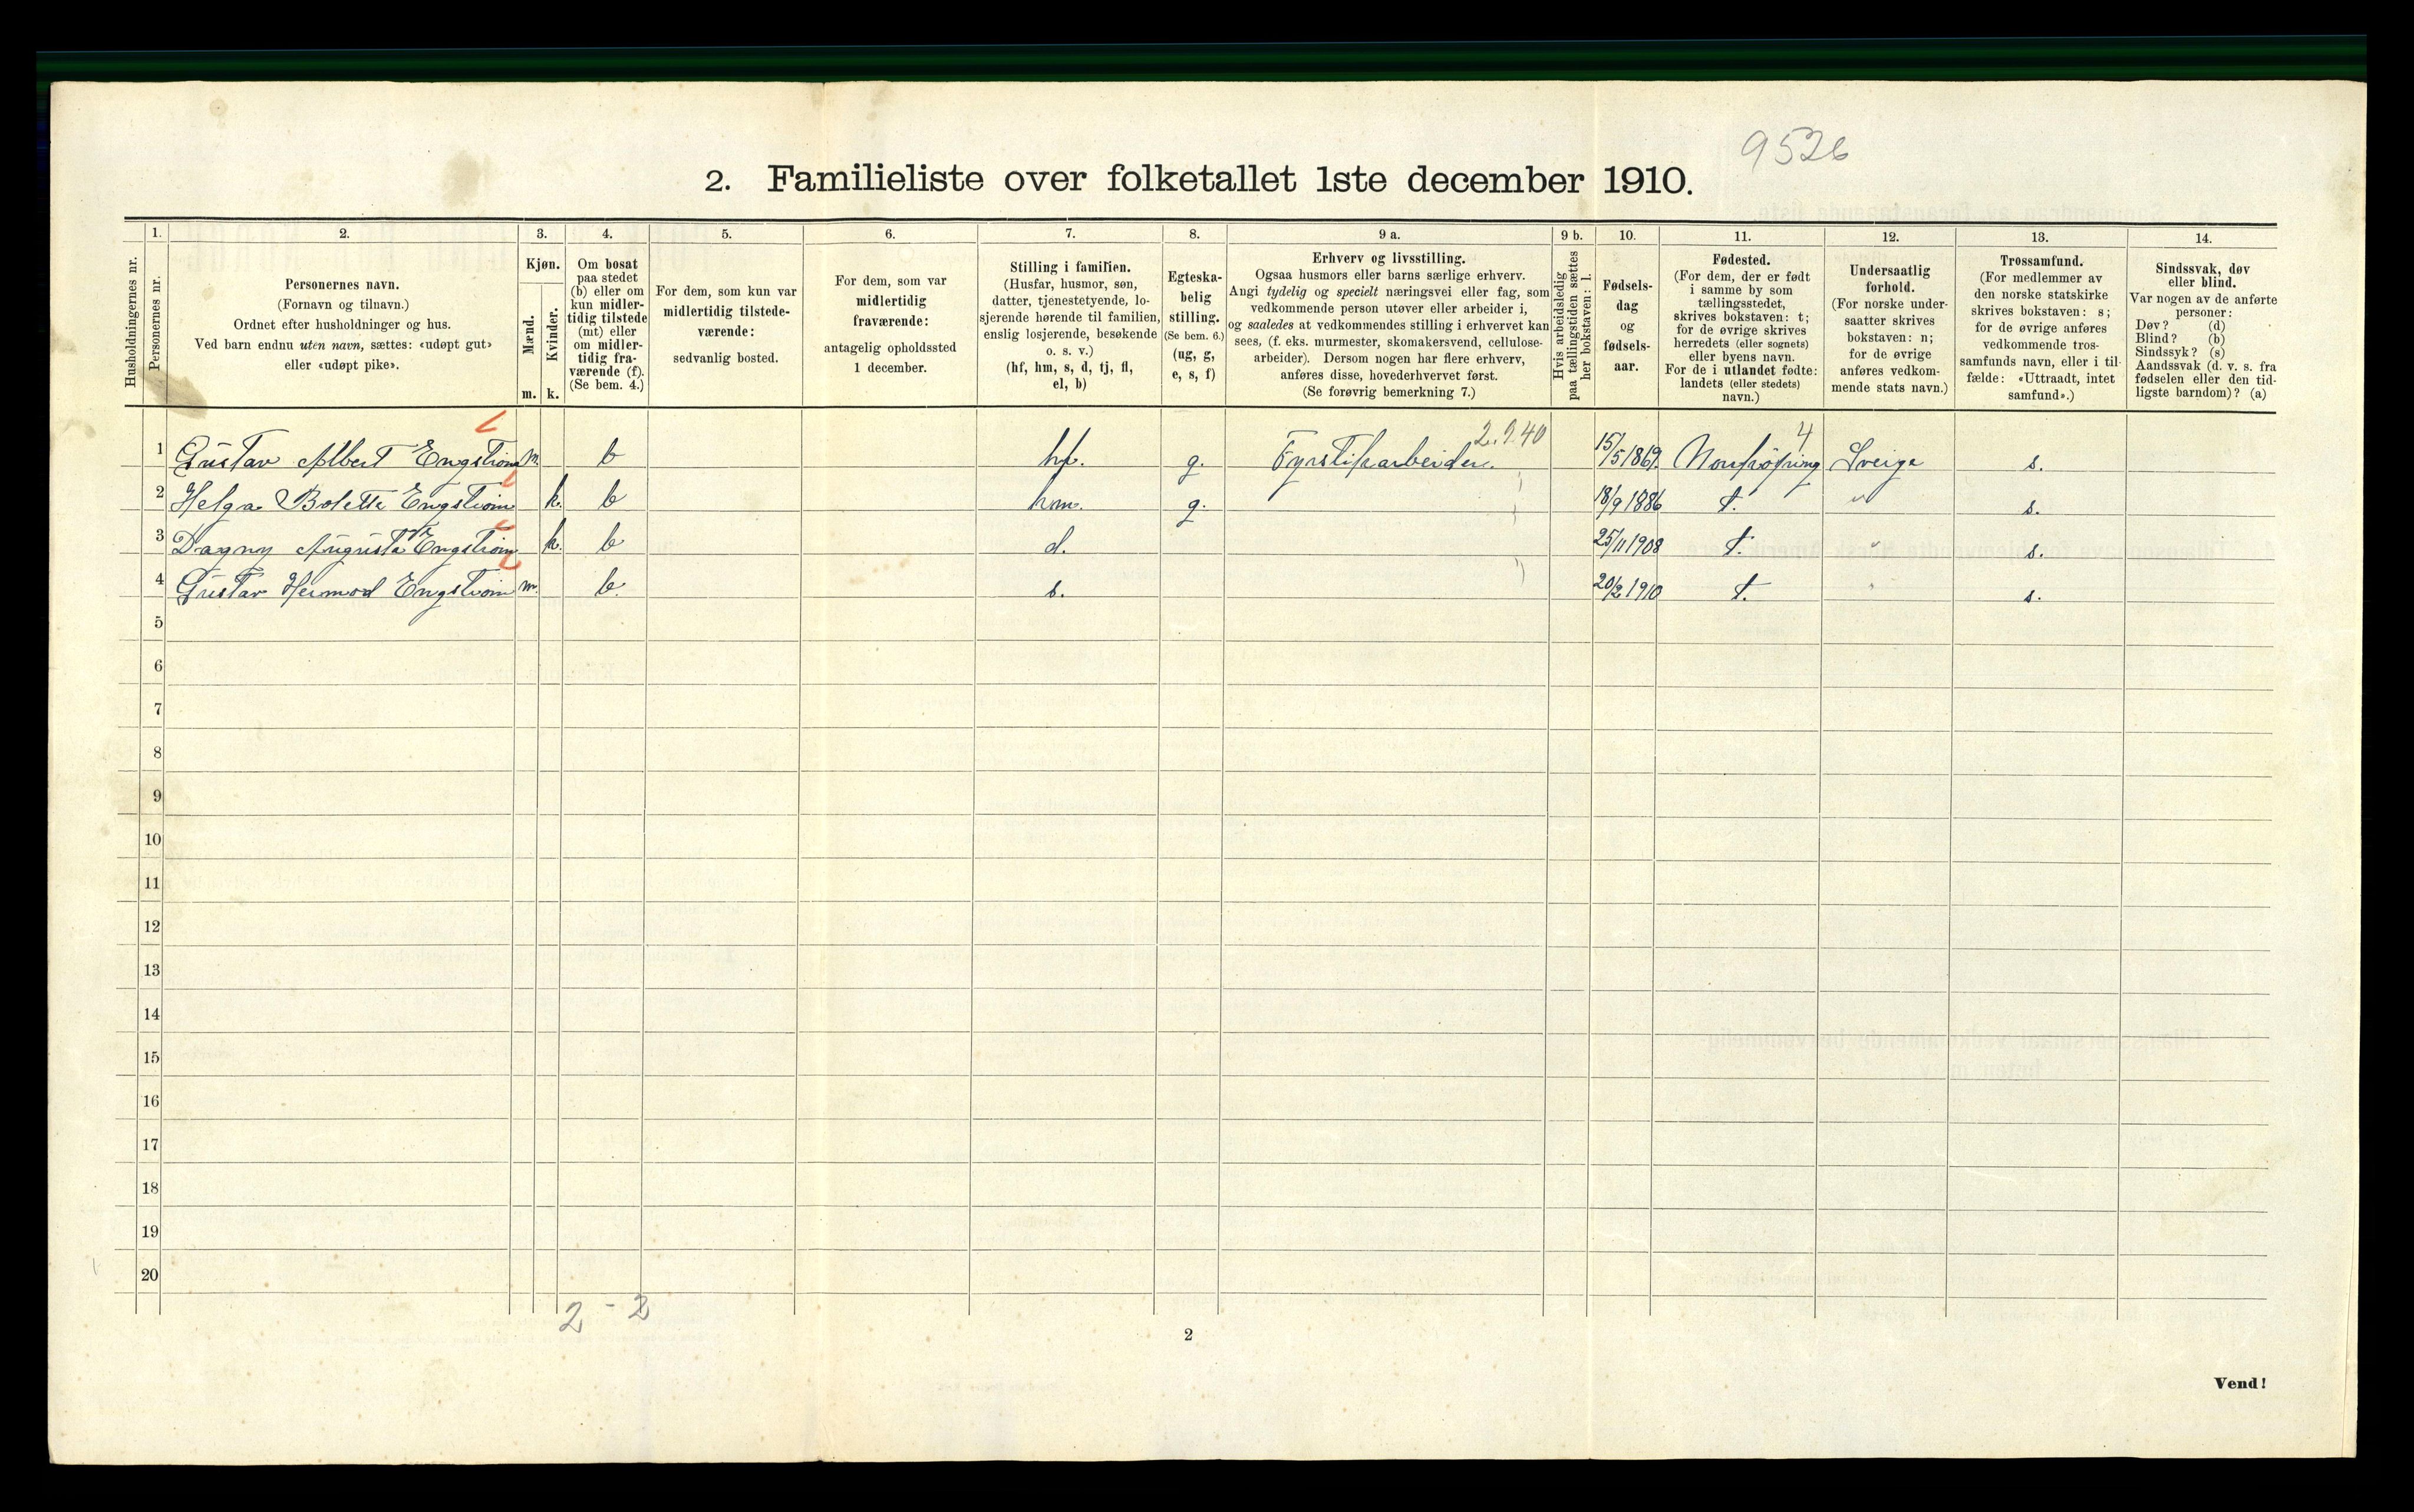 9526
2. Familieliste over folketallet 1ste december 1910.
Husholdningernes nr.
1.
Personernes nr.
2.
Personernes navn.
(Fornavn og tilnavn.)
Ordnet efter husholdninger og hus.
Ved barn endnu uten navn, sættes: «udøpt gut»
eller «udøpt pike».
3.
Kjøn.
Mænd.
Kvinder.
m. k.
4.
Om bosat
paa stedet
(b) eller om
kun midler-
tidig tilstede
(mt) eller
om midler-
tidig fra-
værende (f).
(Se bem. 4.)
5.
For dem, som kun var
midlertidig tilstede-
værende:
sedvanlig bosted.
6.
For dem, som var
midlertidig
fraværende:
antagelig opholdssted
1 december.
7.
Stilling i familien.
(Husfar, husmor, søn,
datter, tjenestetyende, lo-
sjerende hørende til familien,
enslig losjerende, besøkende
o. s. v.)
(hf, hm, s, d, tj, fl,
el, b)
8.
Egteska-
belig
stilling.
(Se bem. 6.)
(ug, g,
e, s, f)
9 a.
Erhverv og livsstilling.
Ogsaa husmors eller barns særlige erhverv.
Angi tydelig og specielt næringsvei eller fag, som
vedkommende person utøver eller arbeider i,
og saaledes at vedkommendes stilling i erhvervet kan
sees, (f. eks. murmester, skomakersvend, cellulose-
arbeider). Dersom nogen har flere erhverv,
anføres disse, hovederhvervet først.
(Se forøvrig bemerkning 7.)
9 b.
Hvis arbeidsledig
paa tællingstiden sættes
her bokstaven: l.
10.
Fødsels-
dag
og
fødsels-
aar.
11.
Fødested.
(For dem, der er født
i samme by som
tællingsstedet,
skrives bokstaven: t;
for de øvrige skrives
herredets (eller sognets)
eller byens navn.
For de i utlandet fødte:
landets (eller stedets)
navn.)
12.
Undersaatlig
forhold.
(For norske under-
saatter skrives
bokstaven: n;
for de øvrige
anføres vedkom-
mende stats navn.)
13.
Trossamfund.
(For medlemmer av
den norske statskirke
skrives bokstaven: s;
for de øvrige anføres
vedkommende tros-
samfunds navn, eller i til-
fælde: «Uttraadt, intet
samfund».)
14.
Sindssvak, døv
eller blind.
Var nogen av de anførte
personer:
Døv? (d)
Blind? (b)
Sindssyk? (s)
Aandssvak (d. v. s. fra
fødselen eller den tid-
ligste barndom)? (a)
2.9.40 4
1 Gustav Albert Engström m. b hf. g. Fyrstikarbeider. 15/5 1869 Norrköping Sverige s.
2 Helga Bolette Engström k. b hm. g. 18/9 1886 t. " s.
3 Dagny Augusta Engström k. b d. 25/11 1908 t. " s.
4 Gustav Hermod Engström m. b. s. 20/2 1910 t. " s.
5
6
7
8
9
10
11
12
13
14
15
16
17
18
19
20
2 - 2
2
Vend!